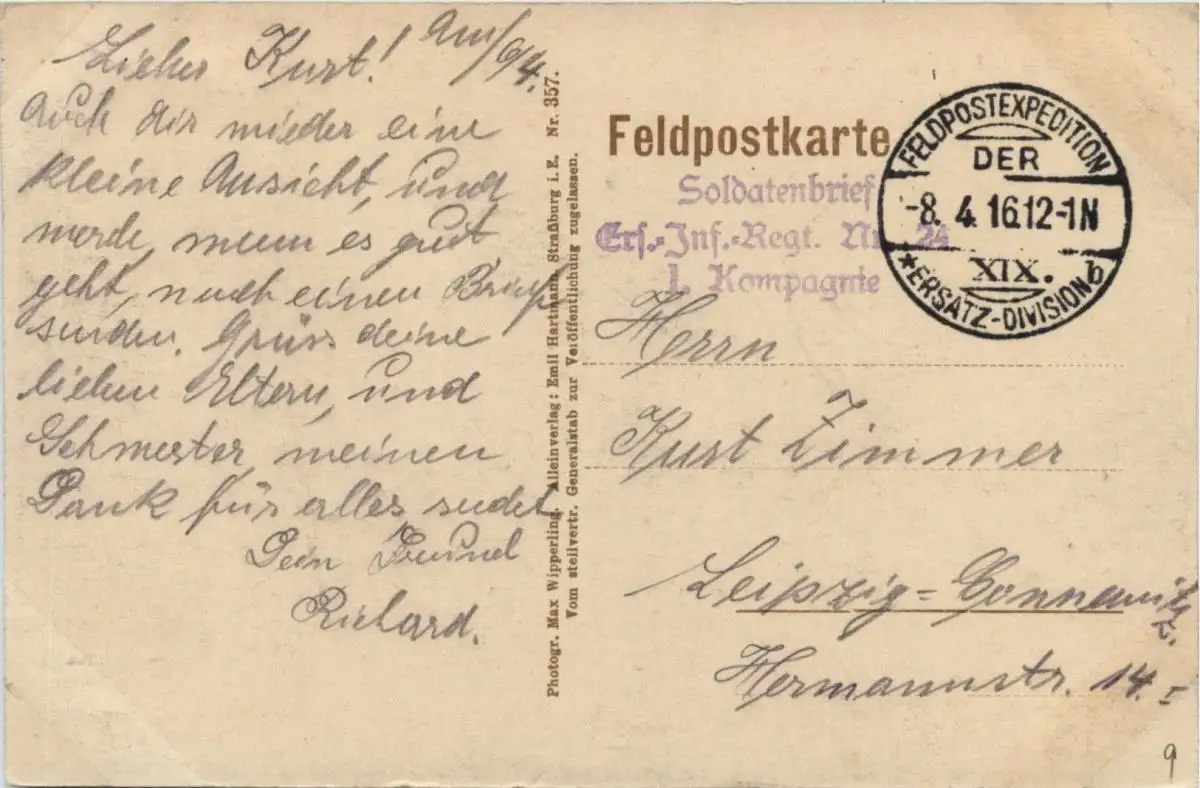 Lieber Kurt! Am 6/4.
Auch dir wieder eine
kleine Ansicht, und
werde, wenn es gut
geht, noch einen Brief
senden. Grüss deine
lieben Eltern, und
Schwester, meinen
Dank für alles sendet
Dein Freund
Richard.
Photogr. Max Wipperling. Alleinverlag: Emil Hartmann, Straßburg i. E. Nr. 357.
Vom stellvertr. Generalstab zur Veröffentlichung zugelassen.
Feldpostkarte
Soldatenbrief
Ers.-Inf.-Regt. Nr. 24
1. Kompagnie
FELDPOSTEXPEDITION
DER
-8.4.16.12-1N
XIX.
*ERSATZ-DIVISION b
Herrn
Kurt Zimmer
Leipzig=Connewitz
Hermannstr. 14. I
9